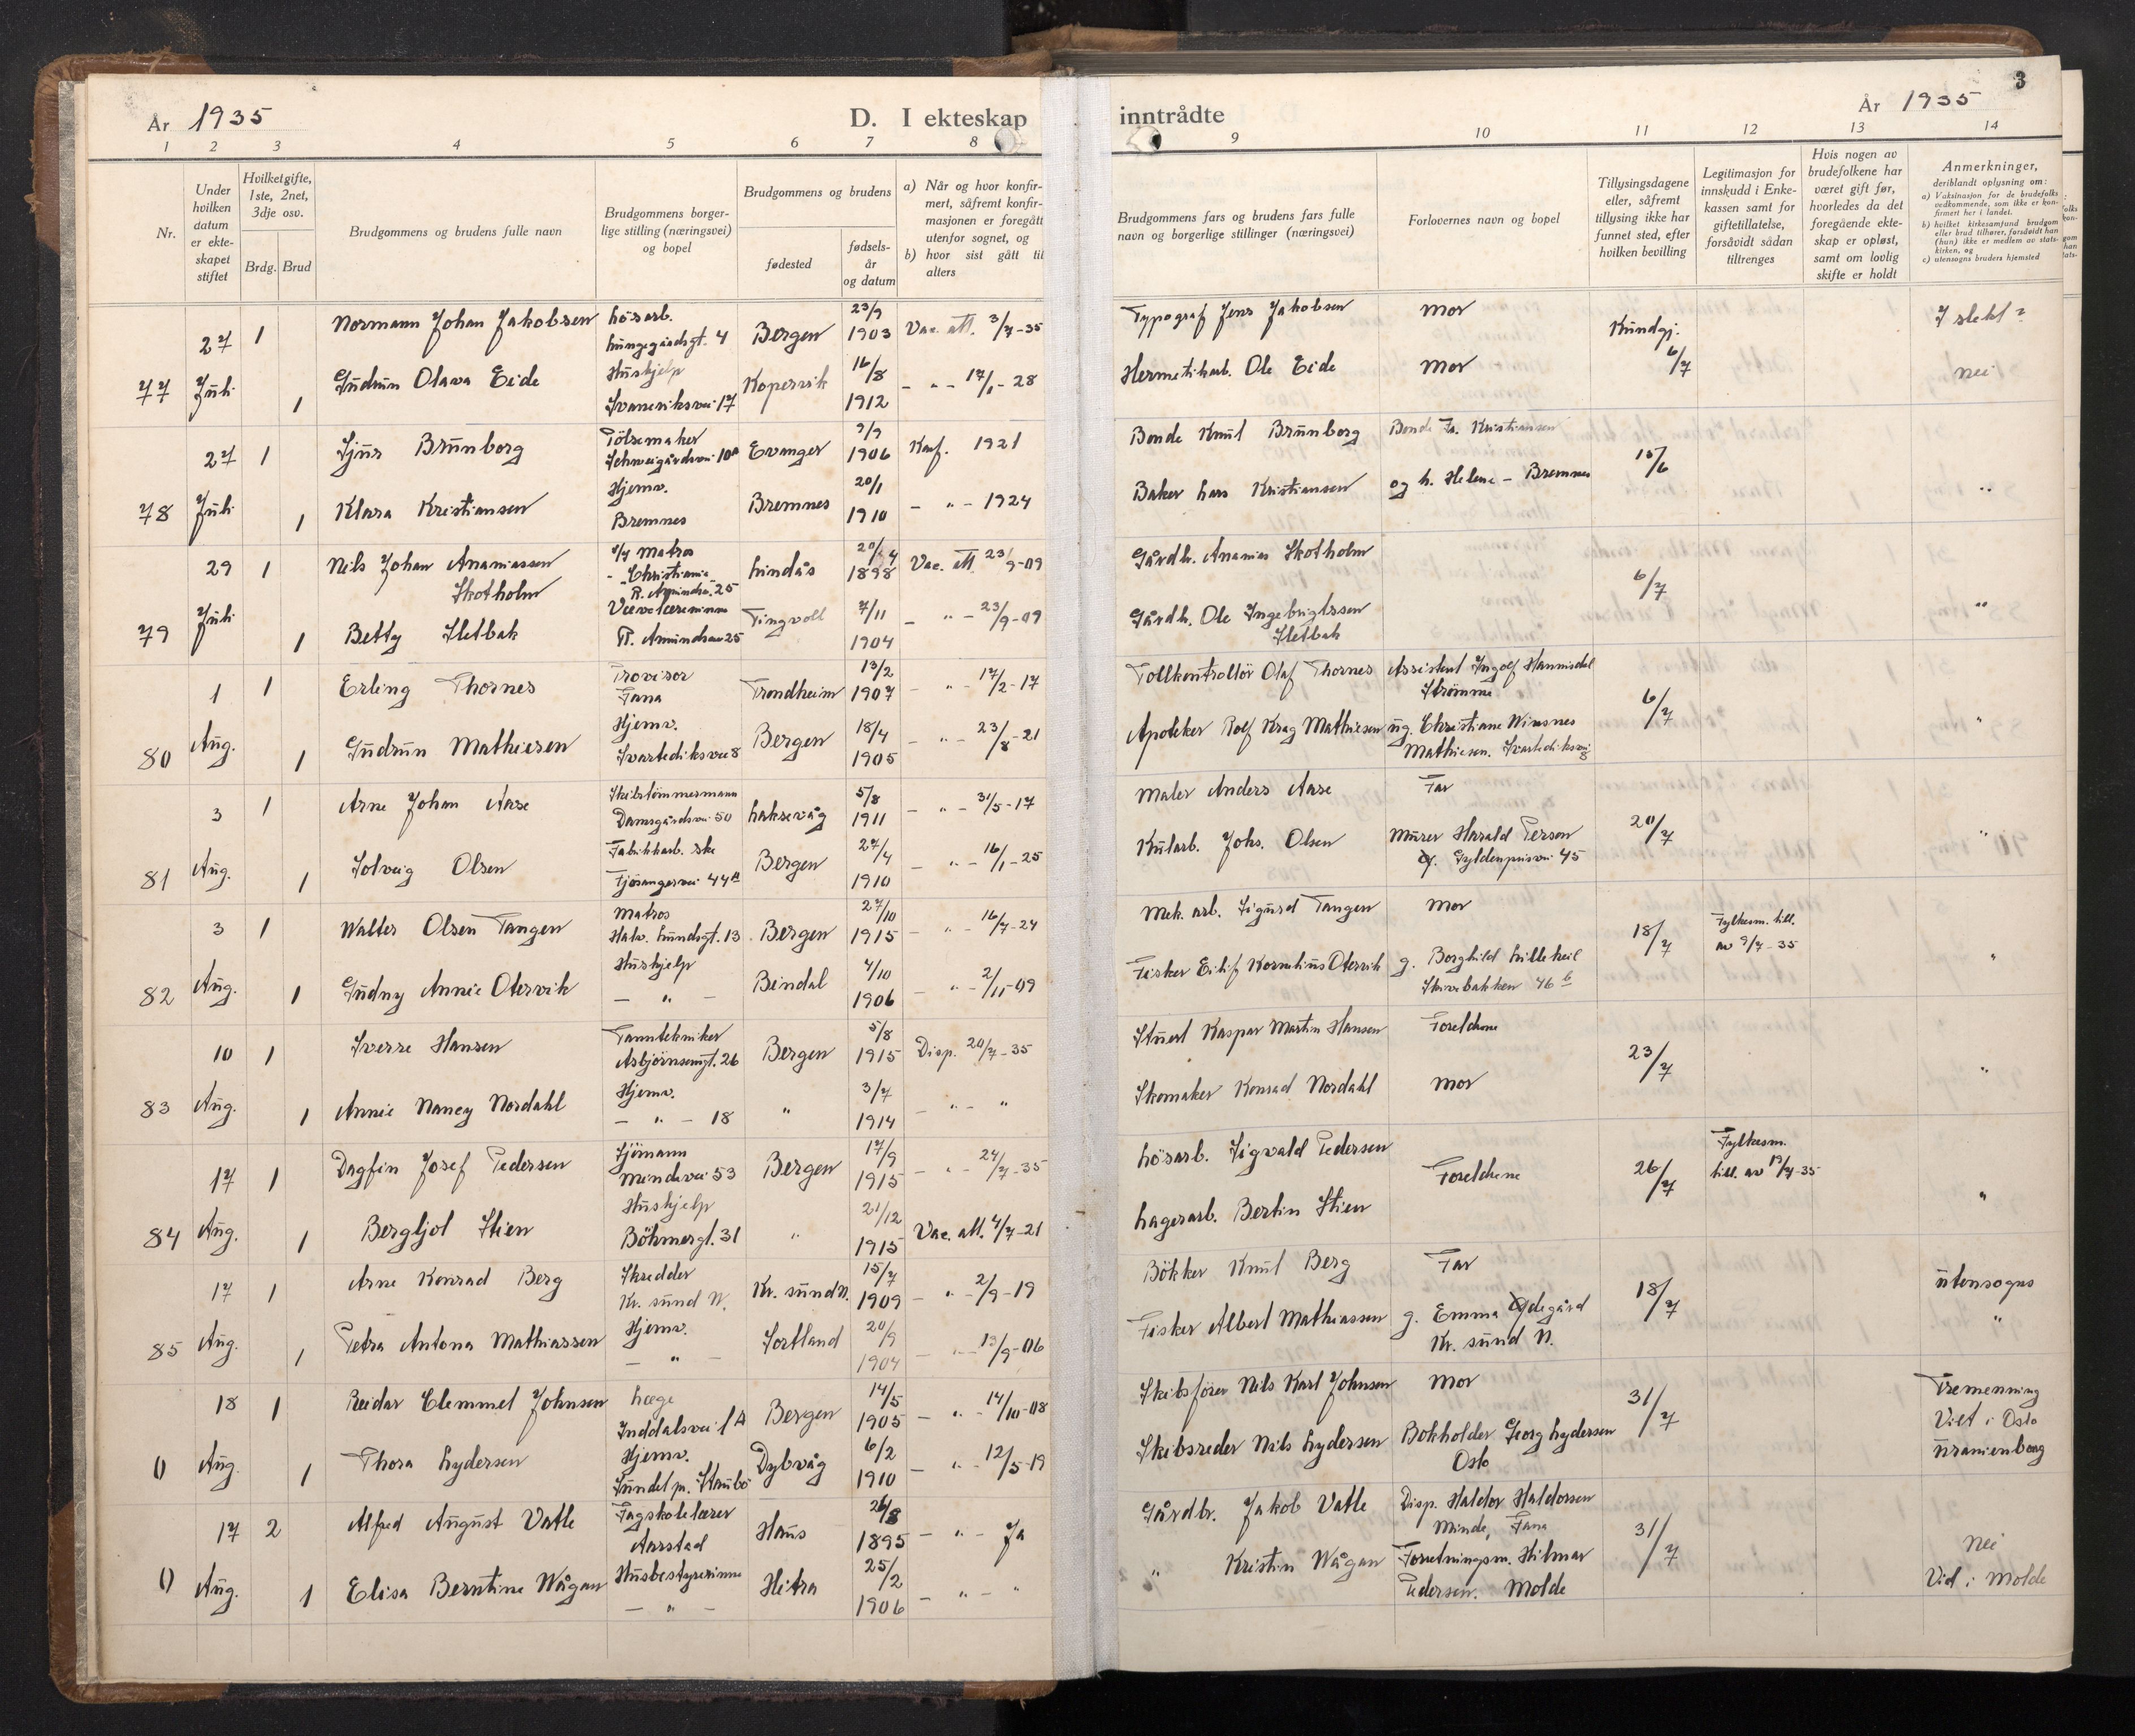 År 1935
D. I ekteskap
inntrådte
År 1935
3
1 2 3 4 5 6 7 8
9 10 11 12 13 14
Nr.
Under hvilken datum er ekteskapet stiftet
Hvilketgifte, 1ste, 2net, 3dje osv.
Brdg. Brud
Brudgommens og brudens fulle navn
Brudgommens borgerlige stilling (næringsvei) og bopel
Brudgommens og brudens
fødested
fødselsår og datum
a) Når og hvor konfirmert, såfremt konfirmasjonen er foregått utenfor sognet, og
b) hvor sist gått til alters
Brudgommens fars og brudens fars fulle navn og borgerlige stillinger (næringsvei)
Forlovernes navn og bopel
Tillysingsdagene eller, såfremt tillysing ikke har funnet sted, efter hvilken bevilling
Legitimasjon for innskudd i Enkekassen samt for giftetillatelse, forsåvidt sådan tiltrenges
Hvis nogen av brudefolkene har været gift før, hvorledes da det foregående ekteskap er opløst, samt om lovlig skifte er holdt
Anmerkninger,
deriblandt oplysning om:
a) Vaksinasjon for de brudefolks vedkommende, som ikke er konfirmert her i landet.
b) hvilket kirkesamfund brudgom eller brud tilhører, forsåvidt han (hun) ikke er medlem av statskirken, og
c) utensogns bruders hjemsted
77 27 Juli 1 Normann Johan Jakobsen Lösarb. Lungegårdsgt. 4 Bergen 23/9 1903 Vac. att. 3/7-35 Typograf Jens Jakobsen Mor Kundgj. 6/7 I slekt?
1 Gudrun Olava Eide Hushjelp Svaneviksvei 17 Kopervik 16/8 1912 - " - 17/1-28 Hermetikarb. Ole Eide Mor nei
78 27 Juli 1 Sjur Brunborg Pölsemaker Schweigårdsvei 10a Evanger 9/9 1906 Konf. 1921 Bonde Knut Brunborg Bonde Fr. Kristiansen 15/6
1 Klara Kristiansen Hjemv. Bremnes Bremnes 20/1 1910 - " - 1924 Baker Lars Kristiansen og h. Helene - Bremnes "
79 29 Juli 1 Nils Johan Ananiassen Skotholm Matros Christiania R. Amundsv. 25 Lindås 1898 Vac. att. 23/9-09 Gårdb. Ananias Skotholm 6/7
1 Betty Sletbak R. Amundsv 25 Tingvoll 7/11 1904 - " - 23/9-09 Gårdb. Ole Ingebrigtssen Sletbak "
80 1 Aug. 1 Erling Thornes Provisor Fana Trondheim 13/2 1907 - " - 17/2-17 Tollkontrollör Olaf Thornes Assistent Ingolf Hannisdal Strömme 6/7
1 Gudrun Mathiesen Hjemv. Svartediksvei 8 Bergen 18/4 1905 - " - 23/8-21 Apoteker Rolf Krag Mathiesen ug. Christiane Wiesnes Mathiesen. Svartediksvei 8 "
81 3 Aug. 1 Arne Johan Aase Skibstömmermann Damsgårdsvei 50 Laksevåg 5/8 1911 - " - 31/5-17 Maler Anders Aase Far 20/7
1 Solveig Olsen Fabrikkarb. ske Fjösangervei 44 a Bergen 27/4 1910 - " - 16/1-25 Kularb. Johs. Olsen Murer Harald Person Gyldenprisvei 45 "
82 3 Aug. 1 Walter Olsen Tangen Matros Halv. Lundsgt. 13 Bergen 27/10 1915 - " - 16/7-24 Mek. arb. Sigurd Tangen Mor 18/7 Fylkesm. till. av 9/7-35
1 Gudny Annie Otervik Hushjelp - " - Bindal 4/10 1906 - " - 2/11-09 Fisker Eilif Kornelius Otervik g. Borghild Lilleheil Skivebakken 46 b "
83 10 Aug. 1 Sverre Hansen Tanntekniker Asbjörnsensgt. 26 Bergen 5/8 1915 Disp. 20/7-35 Stuert Kaspar Martin Hansen Foreldrene 23/7
1 Annie Nancy Nordahl Hjemv. - " - 18 " 3/7 1914 - " - " Skomaker Konrad Nordahl Mor "
84 17 Aug. 1 Dagfin Josef Pedersen Sjömann Mindevei 53 Bergen 17/9 1915 - " - 24/7-35 Lösarb. Sigvald Pedersen Foreldrene 26/7 Fylkesm. till. av 13/7-35
1 Bergljot Stien Hushjelp Böhmergt. 31 " 21/12 1915 Vac. att. 4/7-21 Lagerarb. Bertin Stien "
85 17 Aug. 1 Arne Konrad Berg Skredder Kr. sund N. Kr. sund N. 15/7 1909 - " - 2/9-19 Bökker Knut Berg Far 18/7 utensogns
1 Petra Antona Mathiassen Hjemv. - " - Sortland 20/9 1904 - " - 13/9-06 Fisker Albert Mathiassen g. Emma Ödegård Kr. sund N. "
0 18 Aug. 1 Reidar Clemmet Johnsen Læge Inddalsvei 1 A Bergen 14/5 1905 - " - 14/10-08 Skibsförer Nils Karl Johnsen Mor 31/7 Tremenning
1 Thora Lydersen Hjemv. Sundet pr. Staubö Dybvåg 6/2 1910 - " - 12/5-19 Skibsreder Nils Lydersen Bokholder Georg Lydersen Oslo Viet i Oslo Uranienborg
0 17 Aug. 2 Alfred August Vatle Fagskolelærer Aarstad Haus 26/8 1895 - " - Ja Gårdbr. Jakob Vatle Disp. Haldor Haldorsen Minde, Fana 31/7 nei
1 Elisa Berntine Wågan Husbestyrerinne - " - Hitra 25/2 1906 - " - " " Kristin Wågan Forretningsm. Hilmar Pedersen. Molde Vid i Molde